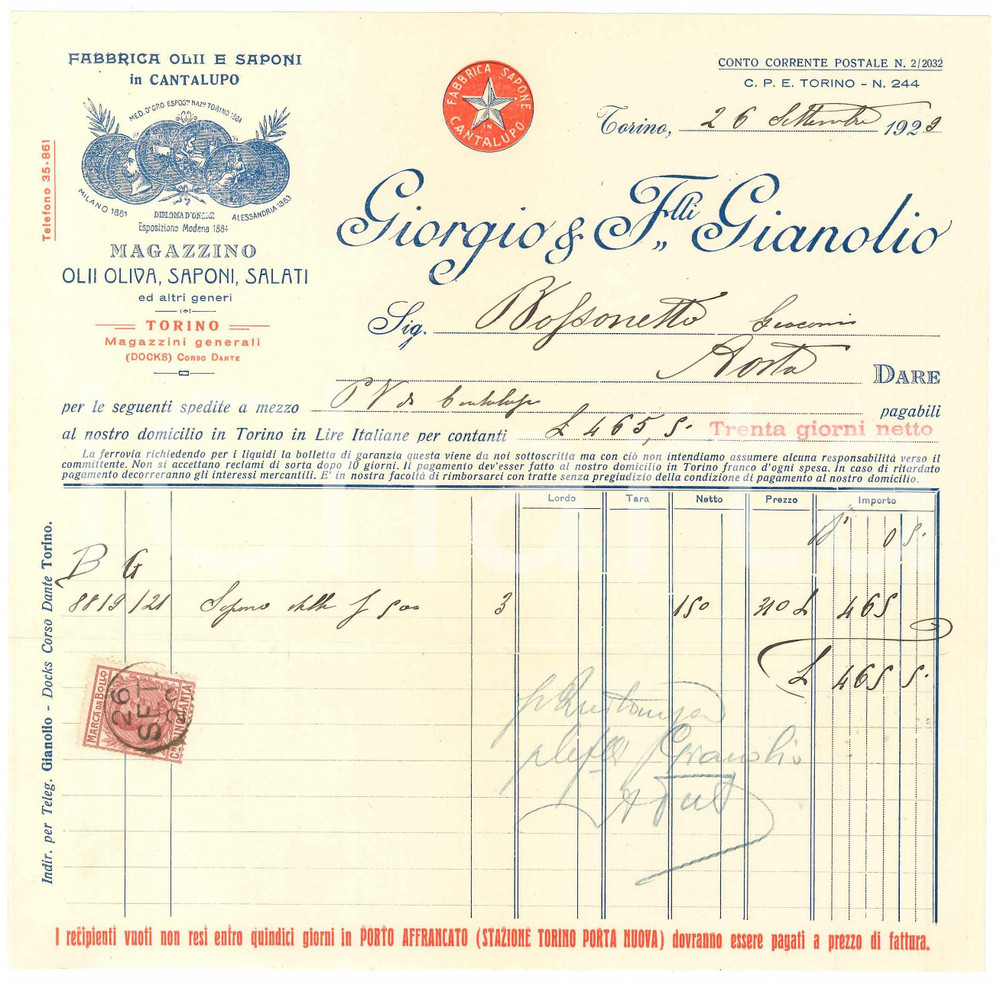 FABBRICA OLII E SAPONI
in CANTALUPO
MED. D'ORO ESPOSNE NAZLE TORINO 1884
MILANO 1881
DIPLOMA D'ONORE
ALESSANDRIA 1883
Esposizione Modena 1884
Telefono 35-861
MAGAZZINO
OLII OLIVA, SAPONI, SALATI
ed altri generi
TORINO
Magazzini generali
(DOCKS) CORSO DANTE
FABBRICA SAPONE
IN
CANTALUPO
CONTO CORRENTE POSTALE N. 2/2032
C. P. E. TORINO - N. 244
Torino, 26 Settembre 1929
Giorgio & F.lli Gianolio
Sig. Bossonetto Giacomo
Aosta DARE
per le seguenti spedite a mezzo PV da Cantalupo pagabili
al nostro domicilio in Torino in Lire Italiane per contanti £ 465,5. Trenta giorni netto
La ferrovia richiedendo per i liquidi la bolletta di garanzia questa viene da noi sottoscritta ma con ciò non intendiamo assumere alcuna responsabilità verso il
committente. Non si accettano reclami di sorta dopo 10 giorni. Il pagamento dev'esser fatto al nostro domicilio in Torino franco d'ogni spesa. In caso di ritardato
pagamento decorreranno gli interessi mercantili. E' in nostra facoltà di rimborsarci con tratte senza pregiudizio della condizione di pagamento al nostro domicilio.
Lordo Tara Netto Prezzo Importo
05.
B G
8819/21 Sapone stella g 500 3 150 310 £ 465
£ 465 5.
MARCA DA BOLLO
CINQUANTA
26 SET
Gianolio
Indir. per Teleg. Gianolio - Docks Corso Dante Torino.
I recipienti vuoti non resi entro quindici giorni in PORTO AFFRANCATO (STAZIONE TORINO PORTA NUOVA) dovranno essere pagati a prezzo di fattura.